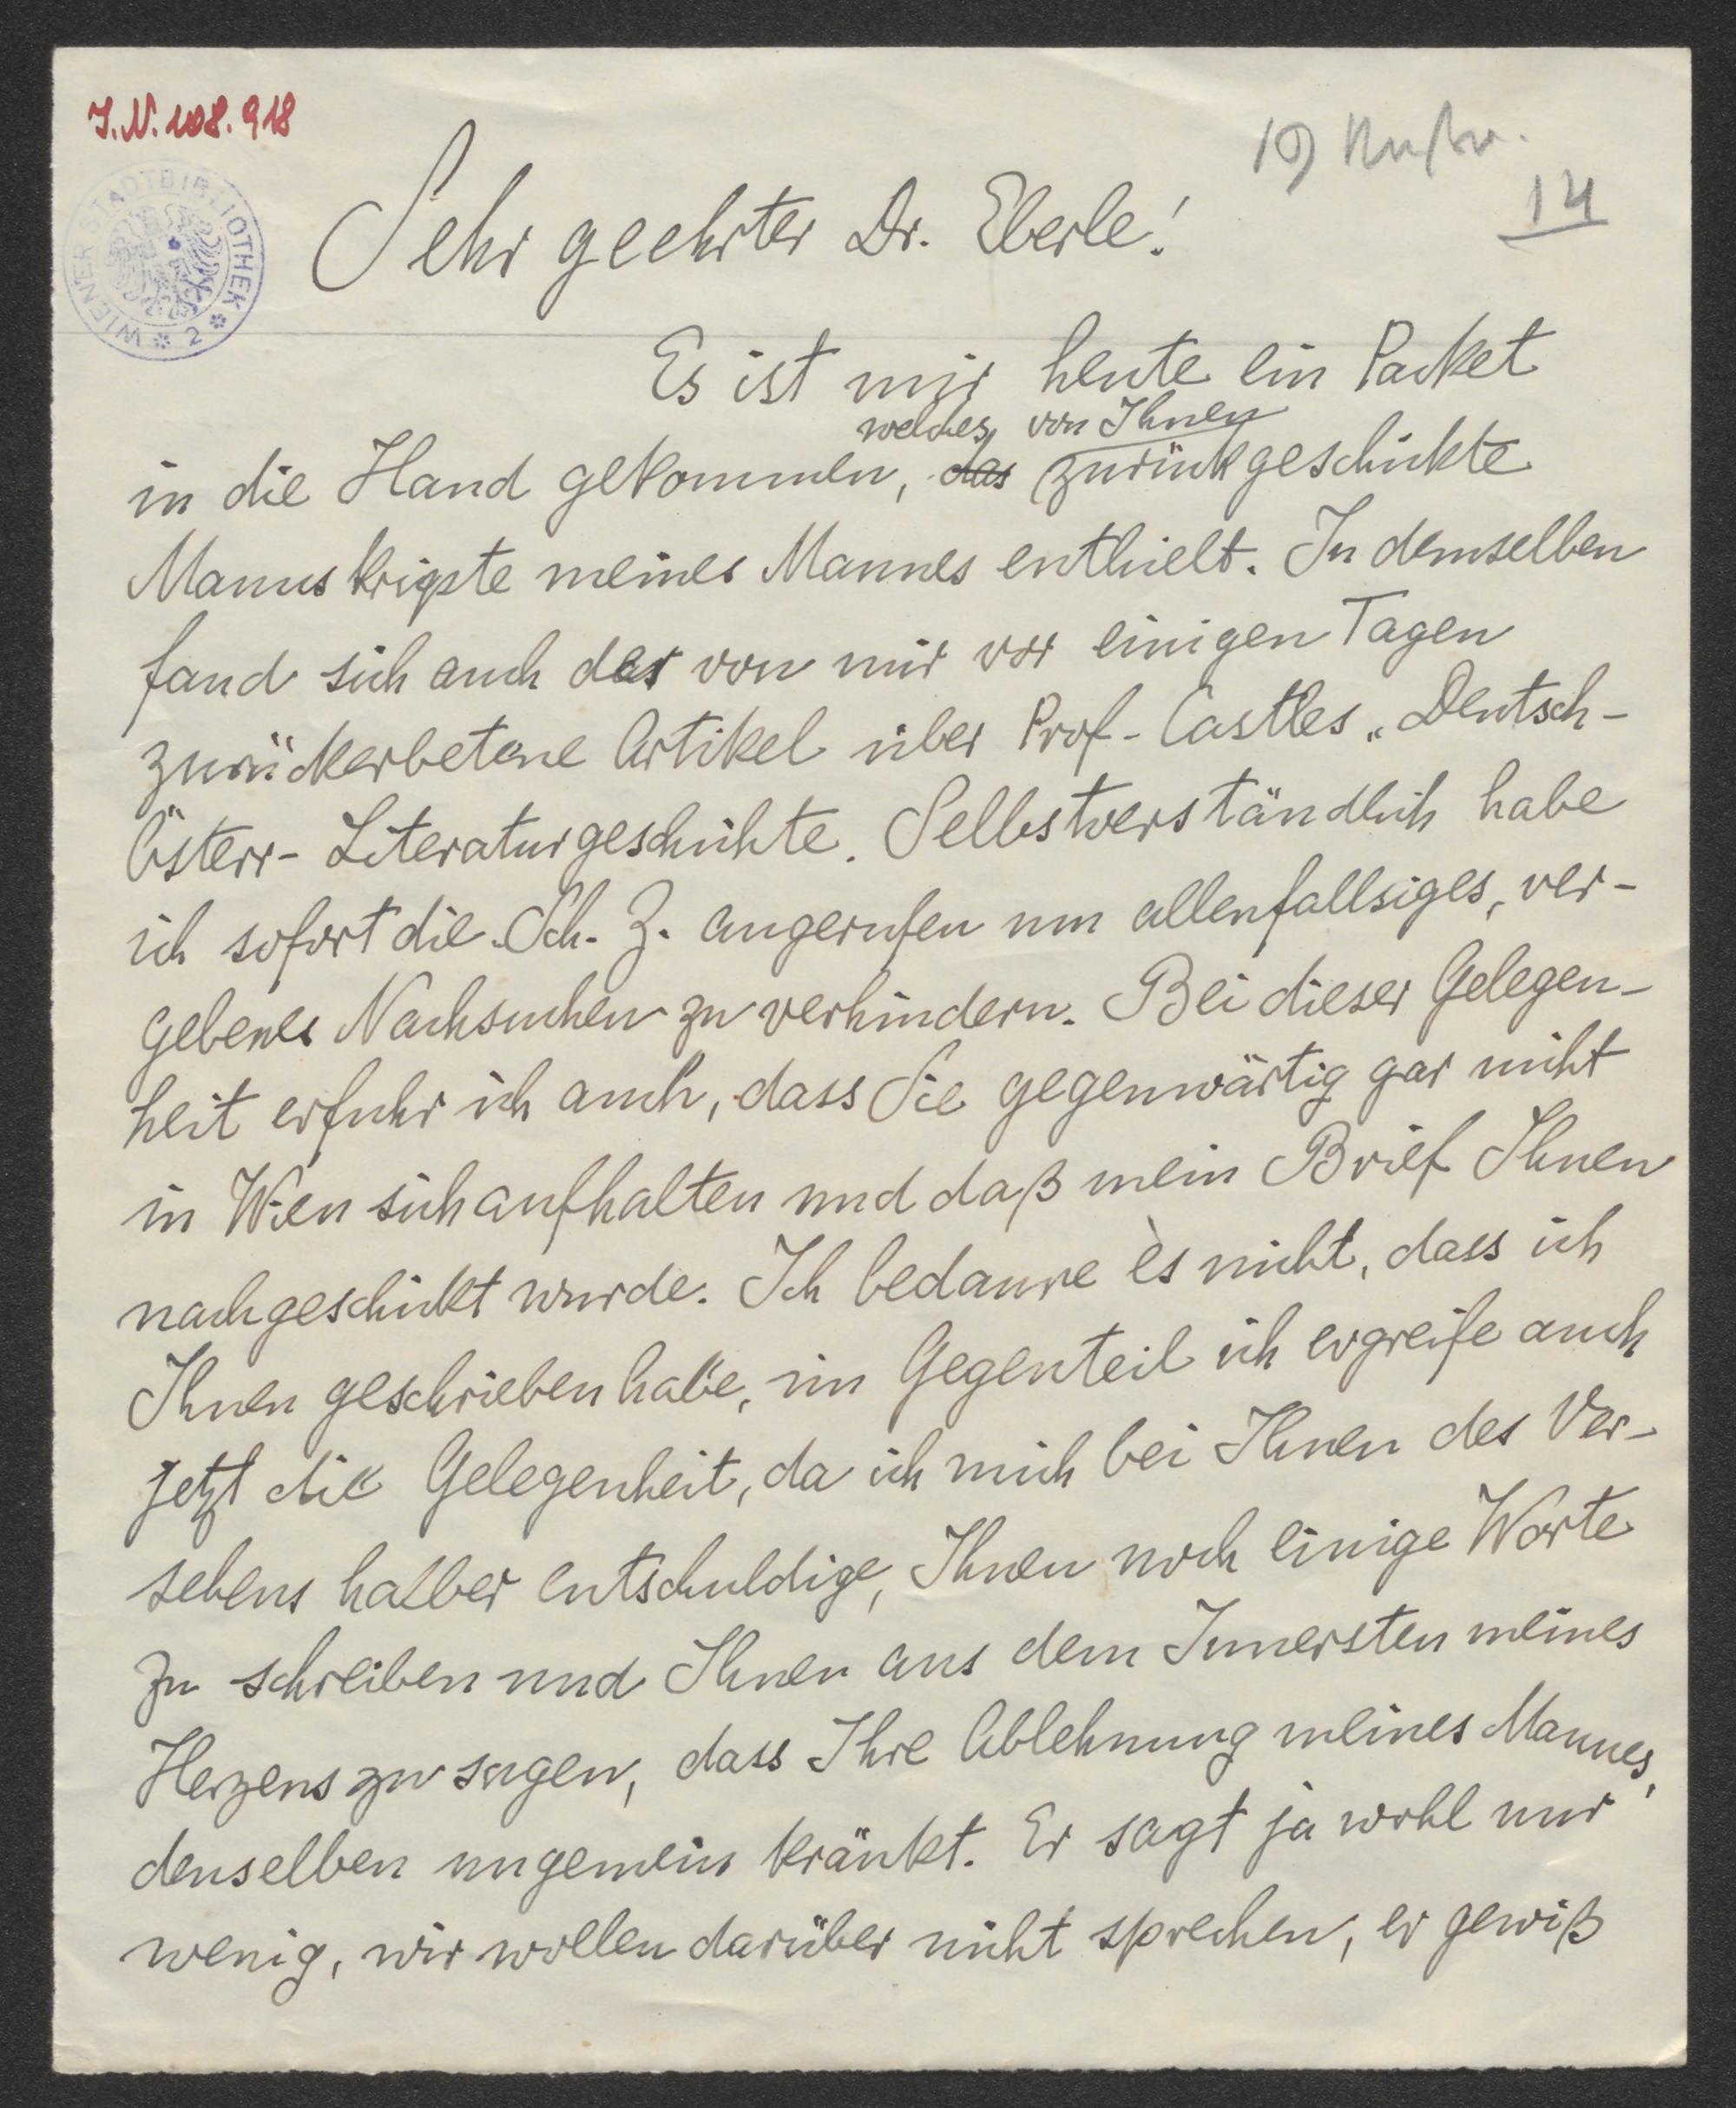 I.N. 108.918
19)
14
WIENER STADTBIBLIOTHEK * 2 *
Sehr geehrter Dr. Eberle!
Es ist mir heute ein Packet
welches von Ihnen
in die Hand gekommen, das zurückgeschickte
Manuskripte meines Mannes enthielt. In demselben
fand sich auch der von mir vor einigen Tagen
zurückerbetene Artikel über Prof. Castles „Deutsch-
Österr- Literaturgeschichte. Selbstverständlich habe
ich sofort die Sch. Z. angerufen um allenfallsiges, ver-
gebenes Nachsuchen zu verhindern. Bei dieser Gelegen-
heit erfuhr ich auch, dass Sie gegenwärtig gar nicht
in Wien sich aufhalten und daß mein Brief Ihnen
nachgeschickt wurde. Ich bedaure es nicht, dass ich
Ihnen geschrieben habe, im Gegenteil ich ergreife auch
jetzt die Gelegenheit, da ich mich bei Ihnen des Ver-
sehens halber entschuldige, Ihnen noch einige Worte
zu schreiben und Ihnen aus dem Innersten meines
Herzens zu sagen, dass Ihre Ablehnung meines Mannes,
denselben ungemein kränkt. Er sagt ja wohl nur
wenig, wir wollen darüber nicht sprechen, er gewiß